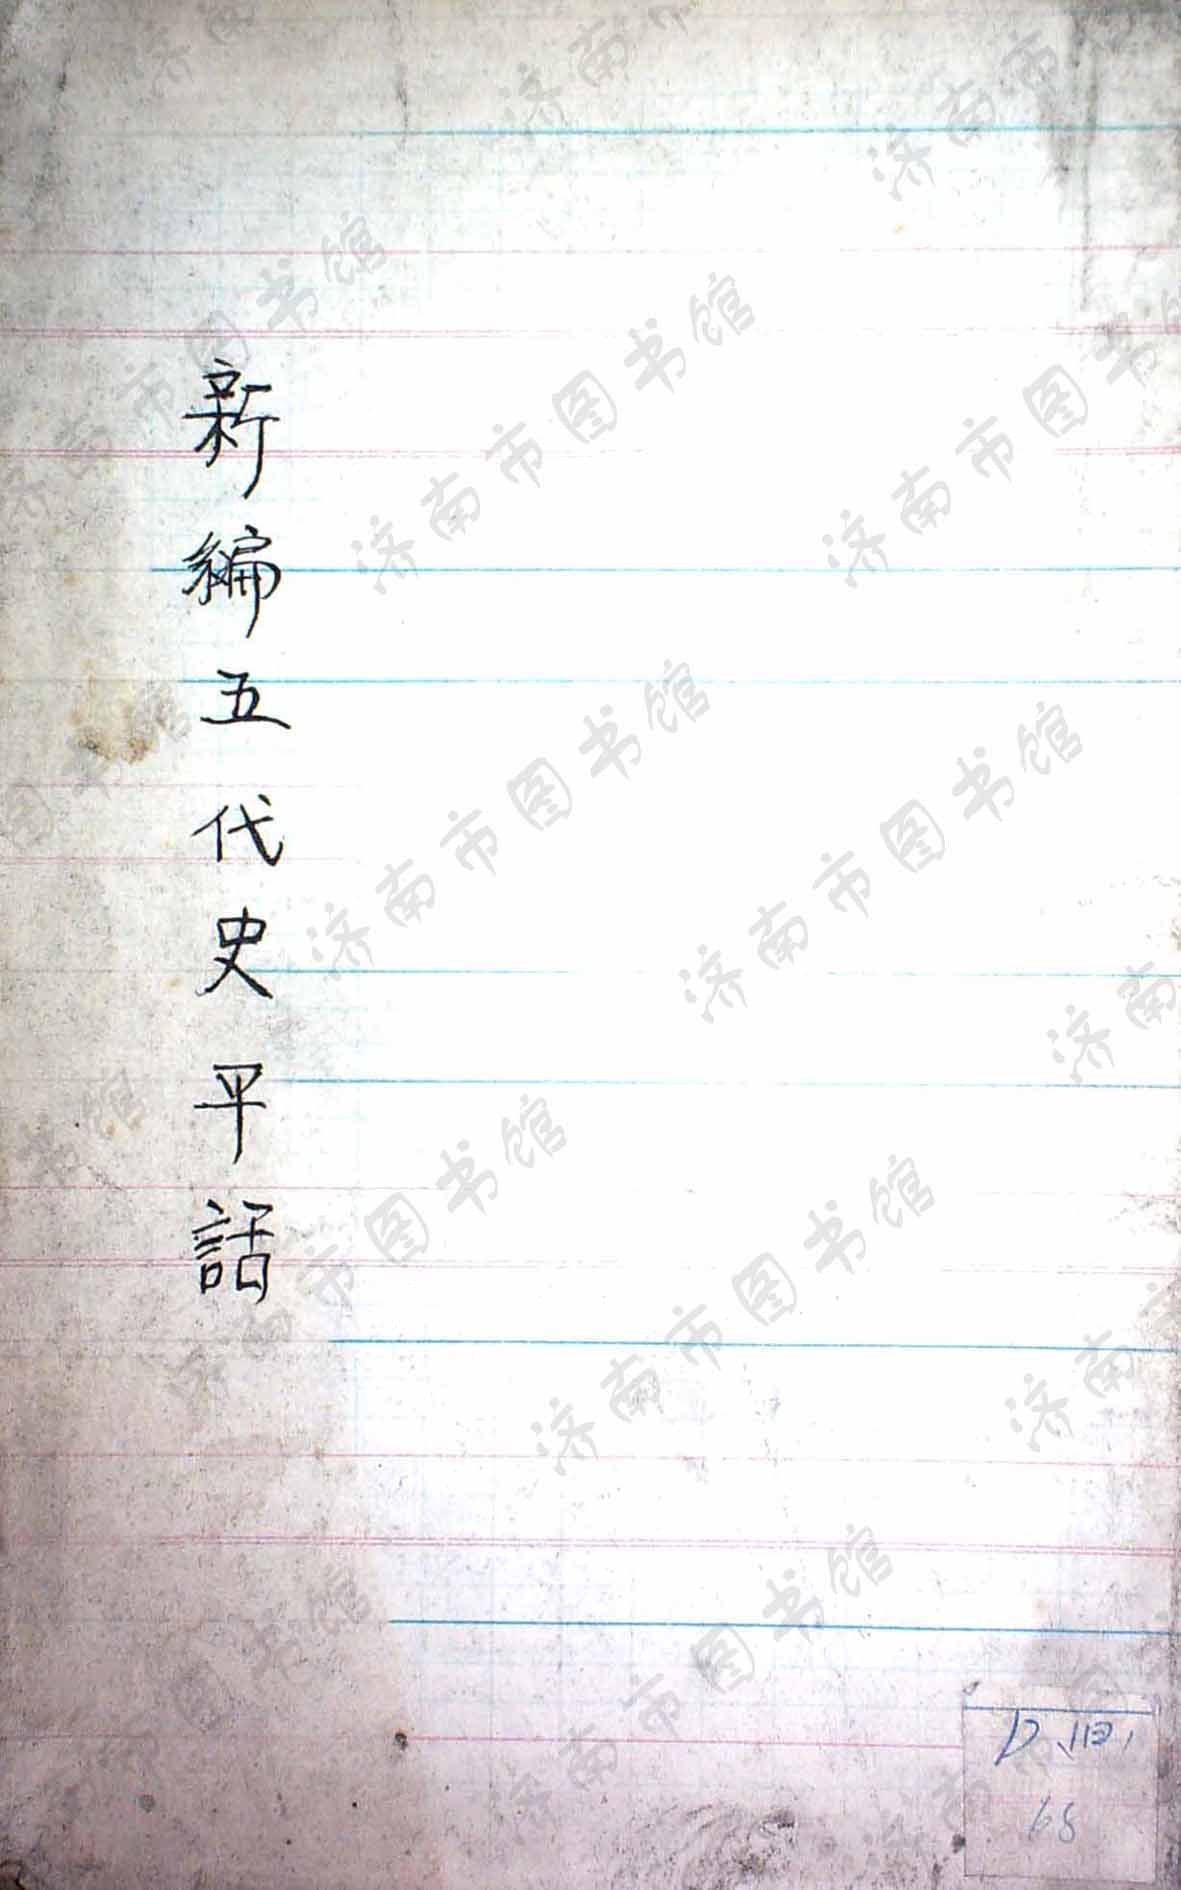 新編五代史平話
D.旧1
68
济南市图书馆